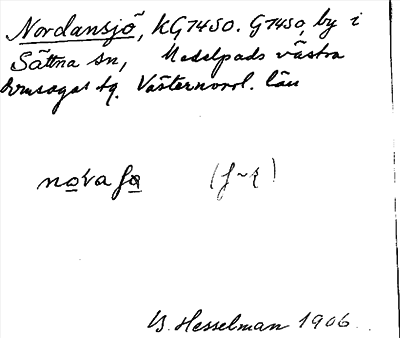 Nordansjö, KG7450. G7450, by i
Sättna sn, Medelpads västra
domsagas tg. Västernorrl. län
novaſa (ſ~ξ)
B. Hesselman 1906